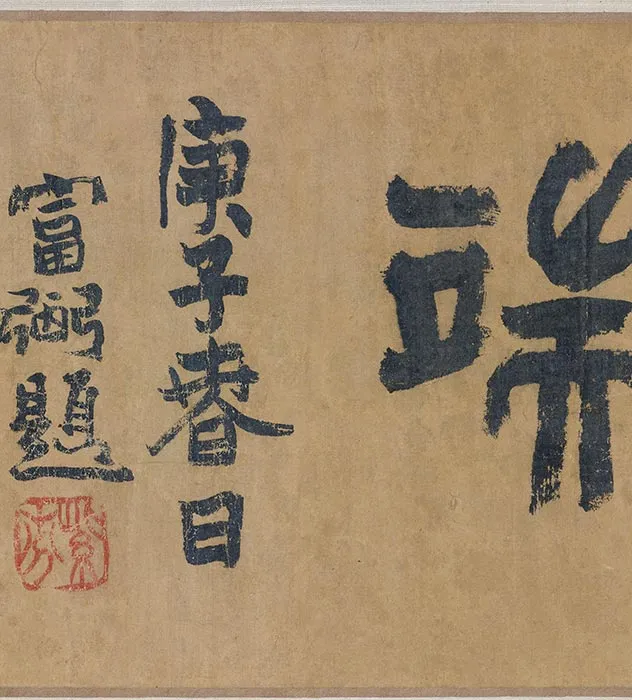 庚子春日
富弼題